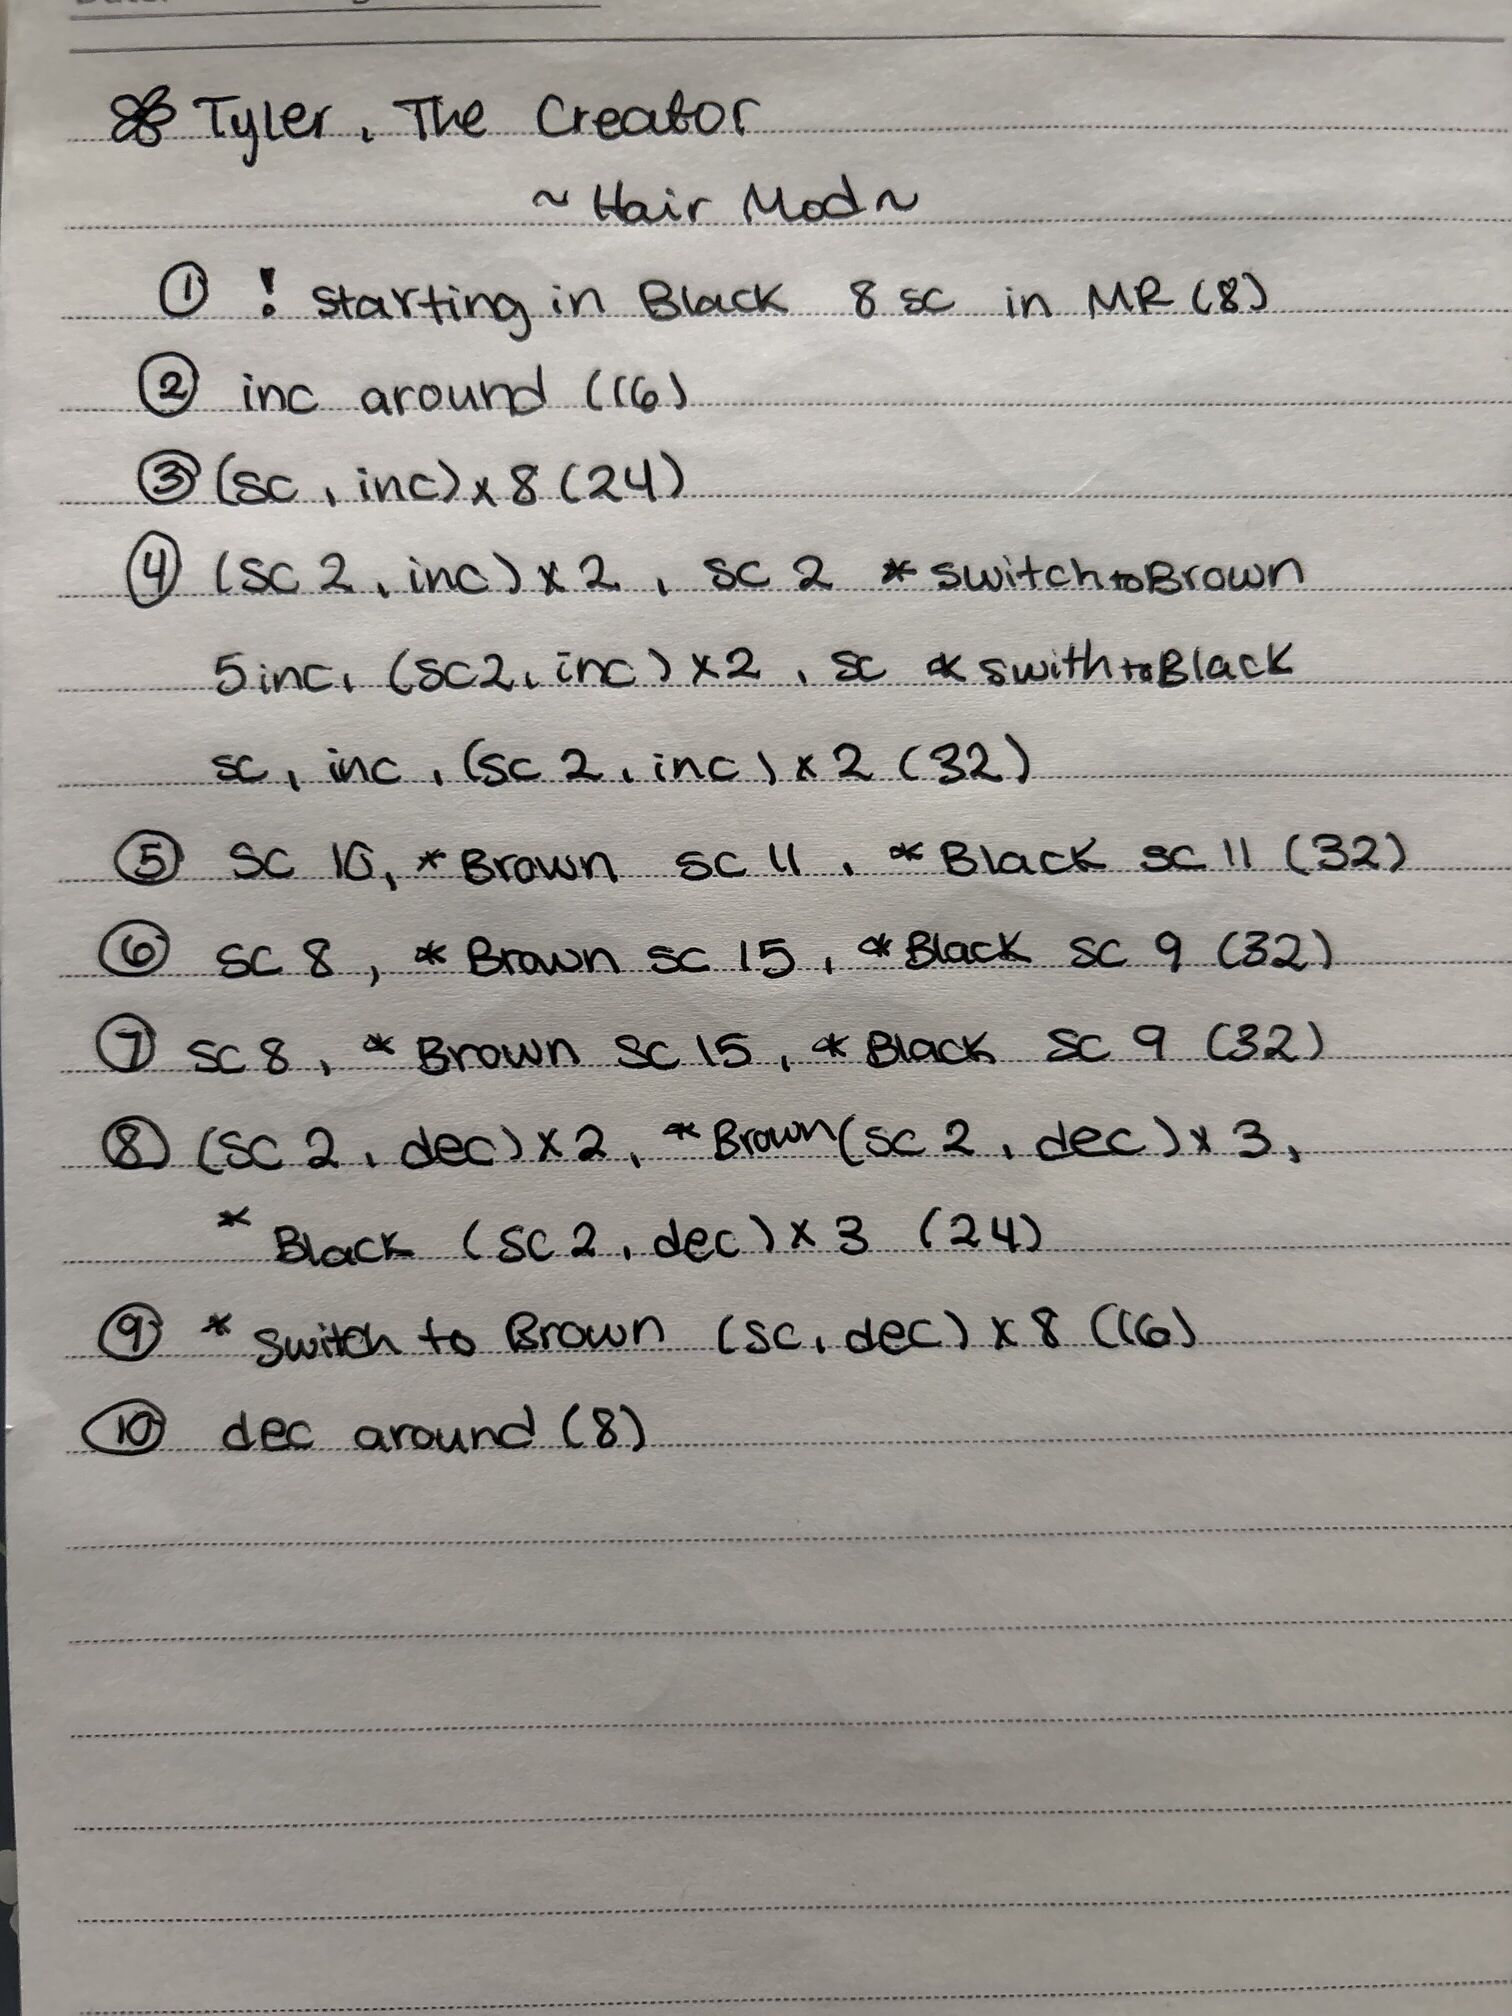 Tyler, The Creator
~ Hair Mod ~
① ! starting in Black 8 sc in MR (8)
② inc around (16)
③ (sc, inc) x 8 (24)
④ (sc 2, inc) x 2, sc 2 * switch to Brown
5 inc, (sc 2, inc) x 2, sc * swith to Black
sc, inc, (sc 2, inc) x 2 (32)
⑤ sc 10, * Brown sc 11, * Black sc 11 (32)
⑥ sc 8, * Brown sc 15, * Black sc 9 (32)
⑦ sc 8, * Brown sc 15, * Black sc 9 (32)
⑧ (sc 2, dec) x 2, * Brown (sc 2, dec) x 3,
* Black (sc 2, dec) x 3 (24)
⑨ * Switch to Brown (sc, dec) x 8 (16)
⑩ dec around (8)